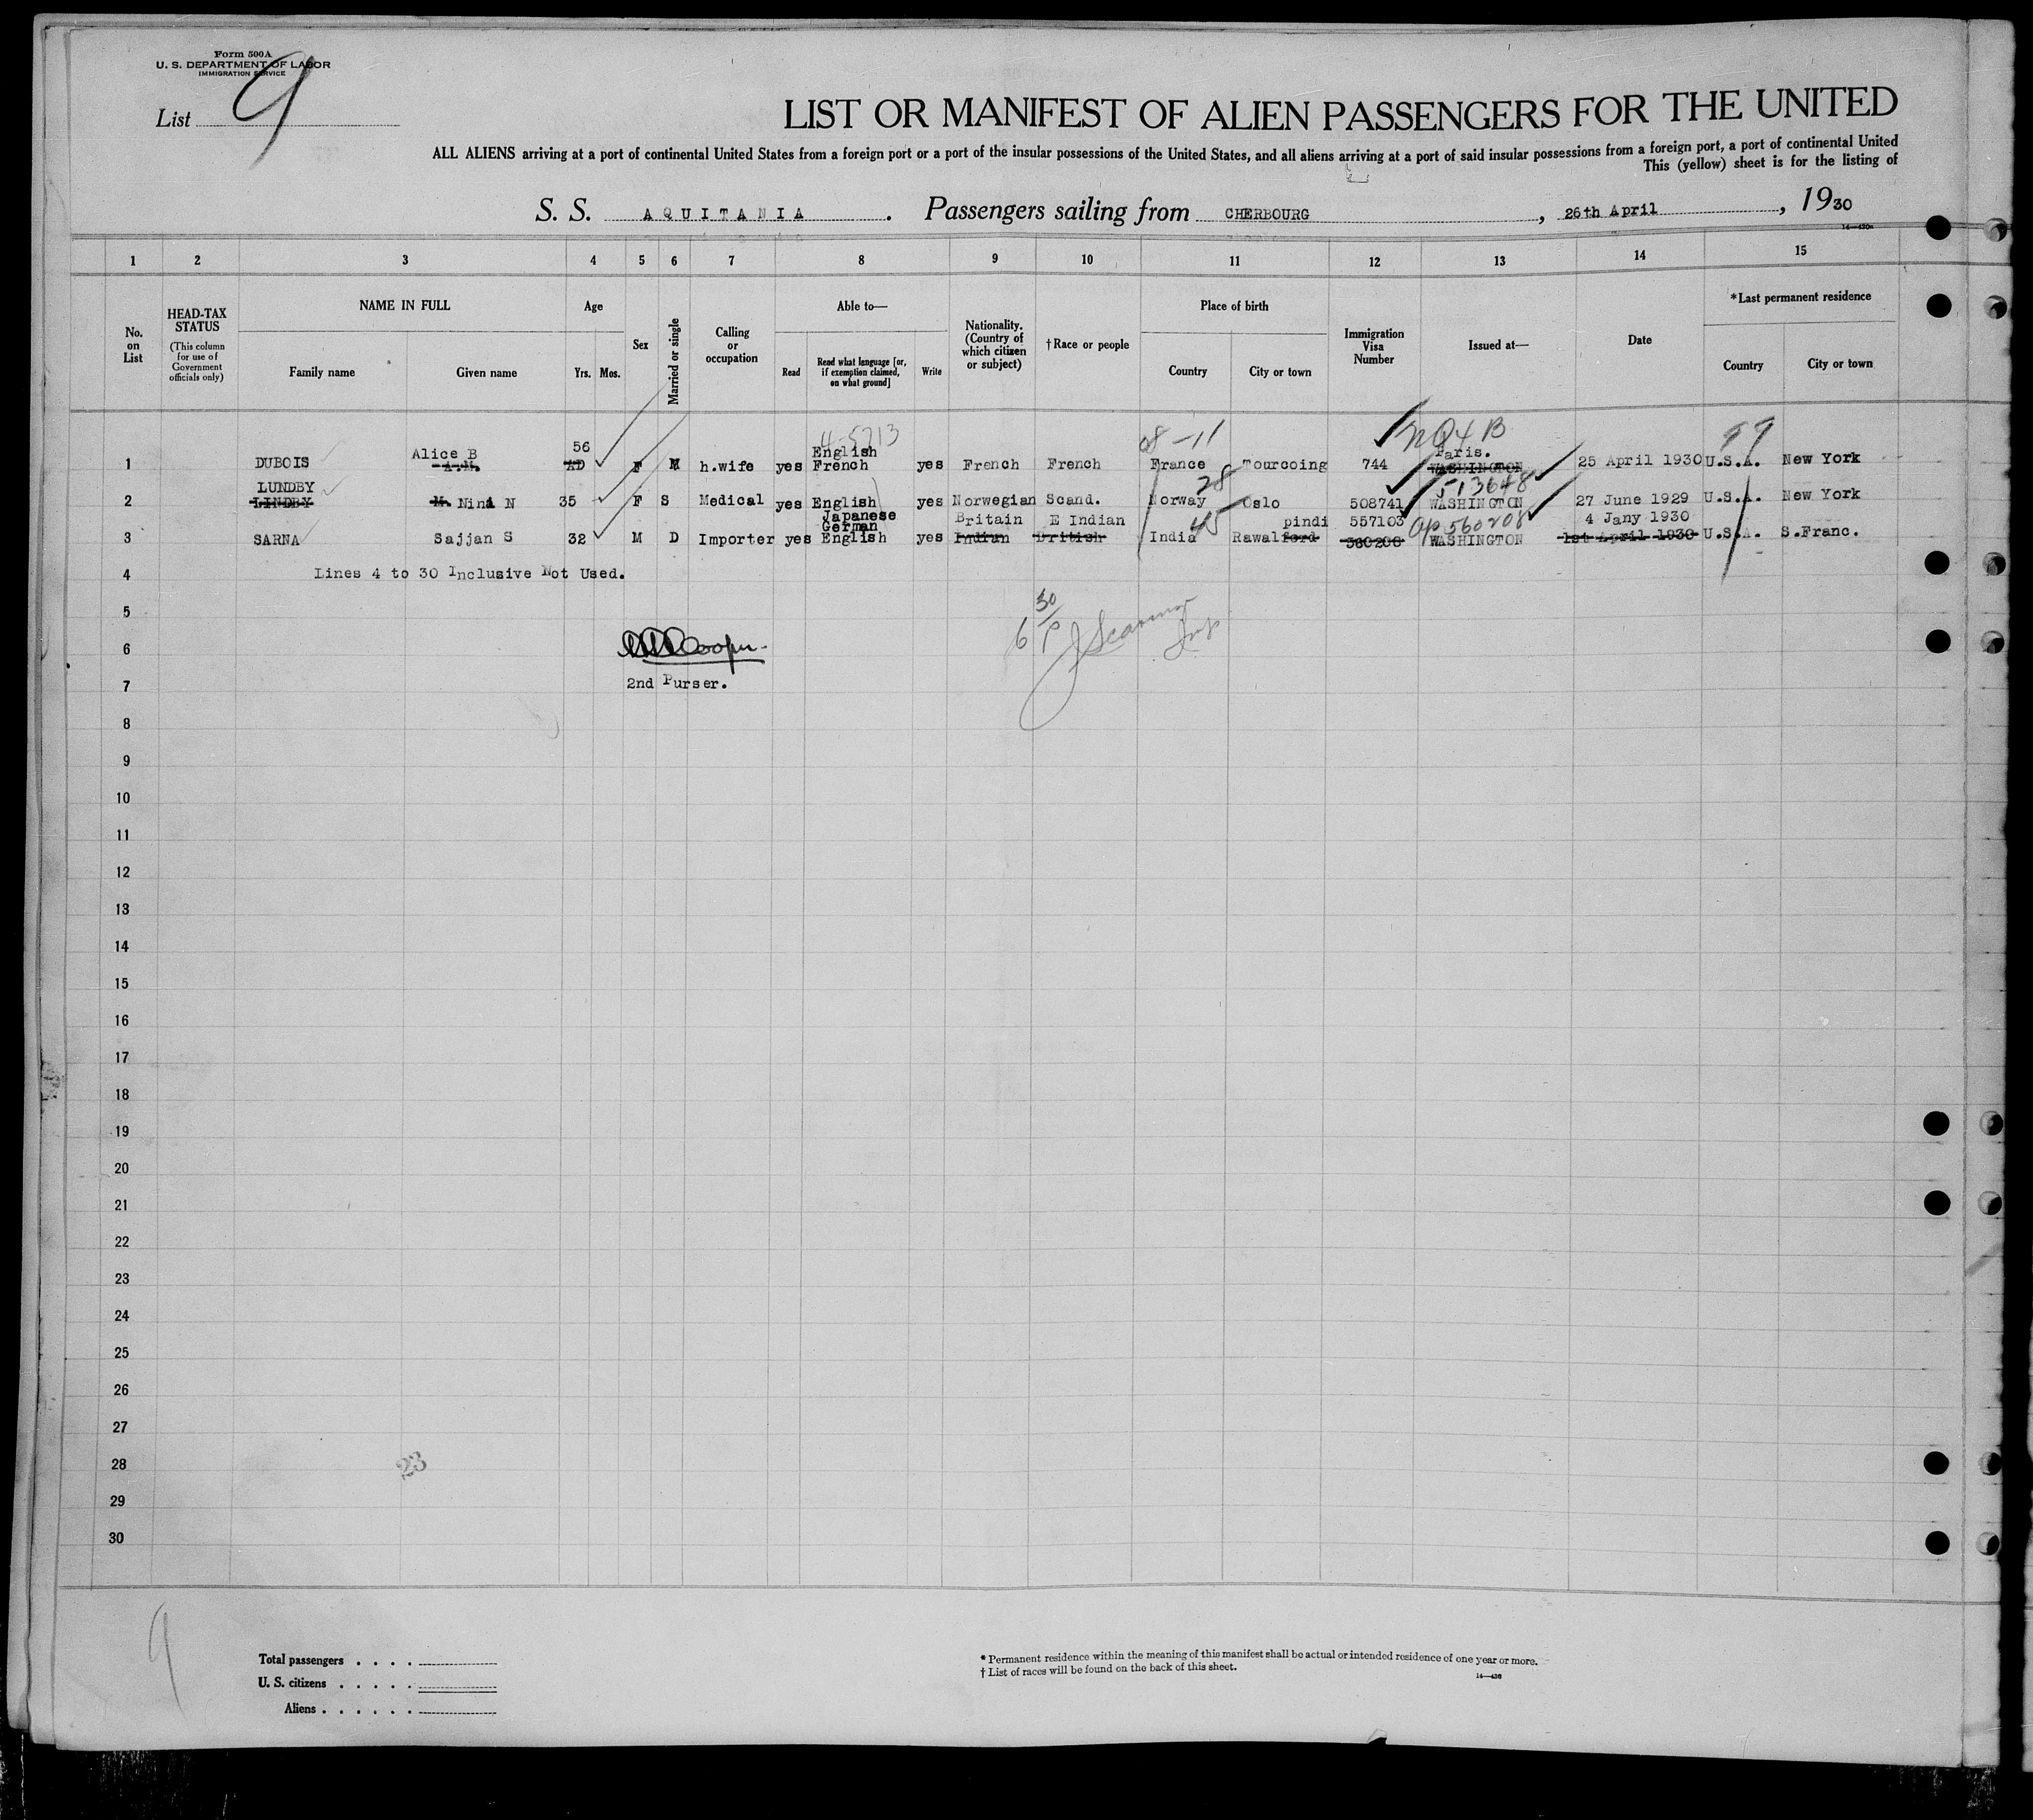 Form 500A
U. S. DEPARTMENT OF LABOR
IMMIGRATION SERVICE
List 9
LIST OR MANIFEST OF ALIEN PASSENGERS FOR THE UNITED
ALL ALIENS arriving at a port of continental United States from a foreign port or a port of the insular possessions of the United States, and all aliens arriving at a port of said insular possessions from a foreign port, a port of continental United
This (yellow) sheet is for the listing of
S. S. AQUITANIA. Passengers sailing from CHERBOURG, 26th April, 1930
1 2 3 4 5 6 7 8 9 10 11 12 13 14 15
No. on List
HEAD-TAX STATUS
(This column for use of Government officials only)
NAME IN FULL
Family name Given name
Age
Yrs. Mos.
Sex
Married or single
Calling or occupation
Able to—
Read
Read what language [or, if exemption claimed, on what ground]
Write
Nationality. (Country of which citizen or subject)
†Race or people
Place of birth
Country City or town
Immigration Visa Number
Issued at—
Date
*Last permanent residence
Country City or town
4-5713 08-11 NQ4B 99
Alice B 56 English Paris.
1 DUBOIS A.M. AD F M h.wife yes French yes French French France Tourcoing 744 WASHINGTON 25 April 1930 U.S.A. New York
LUNDBY 28 513648
2 LINDBY M. Nini N 35 F S Medical yes English yes Norwegian Scand. Norway Oslo 508741 WASHINGTON 27 June 1929 U.S.A. New York
Japanese German Britain E Indian 45 pindi 557103 560208 4 Jany 1930
3 SARNA Sajjan S 32 M D Importer yes English yes Indian British India Rawalford 560208 WASHINGTON 1st April 1930 U.S.A. S.Franc.
4 Lines 4 to 30 Inclusive Not Used.
5
6 Cooper
7 2nd Purser.
8
9
10
11
12
13
14
15
16
17
18
19
20
21
22
23
24
25
26
27
28 23
29
30
9
Total passengers . . . .
U. S. citizens . . . . .
Aliens . . . . . .
* Permanent residence within the meaning of this manifest shall be actual or intended residence of one year or more.
† List of races will be found on the back of this sheet.